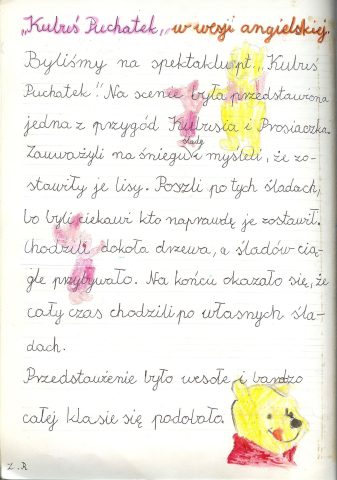 „Kubuś Puchatek,, w wersji angielskiej.
Byliśmy na spektaklu pt. „Kubuś
Puchatek." Na scenie była przedstawiona
jedna z przygód Kubusia i Prosiaczka.
ślady
Zauważyli na śniegu i myśleli, że zo-
stawiły je lisy. Poszli po tych śladach,
bo byli ciekawi kto naprawdę je zostawił.
Chodzili dokoła drzewa, a śladów cią-
gle przybywało. Na końcu okazało się, że
cały czas chodzili po własnych śla-
dach.
Przedstawienie było wesołe i bardzo
całej klasie się podobało.
Z.R